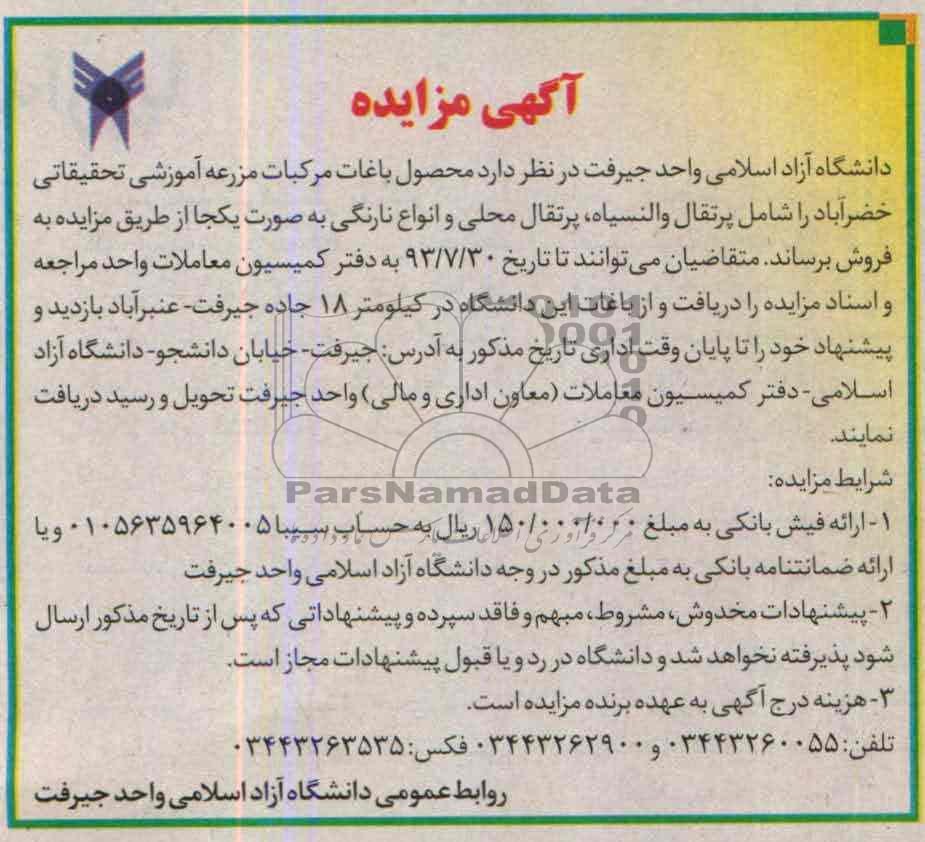 آگهی مزایده
دانشگاه آزاد اسلامی واحد جیرفت در نظر دارد محصول باغات مرکبات مزرعه آموزشی تحقیقاتی
خضرآباد را شامل پرتقال والنسیاه، پرتقال محلی و انواع نارنگی به صورت یکجا از طریق مزایده به
فروش برساند. متقاضیان می‌توانند تا تاریخ ۹۳/۷/۳۰ به دفتر کمیسیون معاملات واحد مراجعه
و اسناد مزایده را دریافت و از باغات این دانشگاه در کیلومتر ۱۸ جاده جیرفت- عنبرآباد بازدید و
پیشنهاد خود را تا پایان وقت اداری تاریخ مذکور به آدرس: جیرفت- خیابان دانشجو- دانشگاه آزاد
اسلامی- دفتر کمیسیون معاملات (معاون اداری و مالی) واحد جیرفت تحویل و رسید دریافت
نمایند.
شرایط مزایده:
ParsNamadData
۱- ارائه فیش بانکی به مبلغ ۱۵۰/۰۰۰/۰۰۰ ریال به حساب سیبا ۰۱۰۵۶۳۵۹۶۴۰۰۵ و یا
ارائه ضمانتنامه بانکی به مبلغ مذکور در وجه دانشگاه آزاد اسلامی واحد جیرفت
۲- پیشنهادات مخدوش، مشروط، مبهم و فاقد سپرده و پیشنهاداتی که پس از تاریخ مذکور ارسال
شود پذیرفته نخواهد شد و دانشگاه در رد و یا قبول پیشنهادات مجاز است.
۳- هزینه درج آگهی به عهده برنده مزایده است.
تلفن: ۰۳۴۴۳۲۶۰۰۵۵ و ۰۳۴۴۳۲۶۲۹۰۰ فکس: ۰۳۴۴۳۲۶۳۵۳۵
روابط عمومی دانشگاه آزاد اسلامی واحد جیرفت